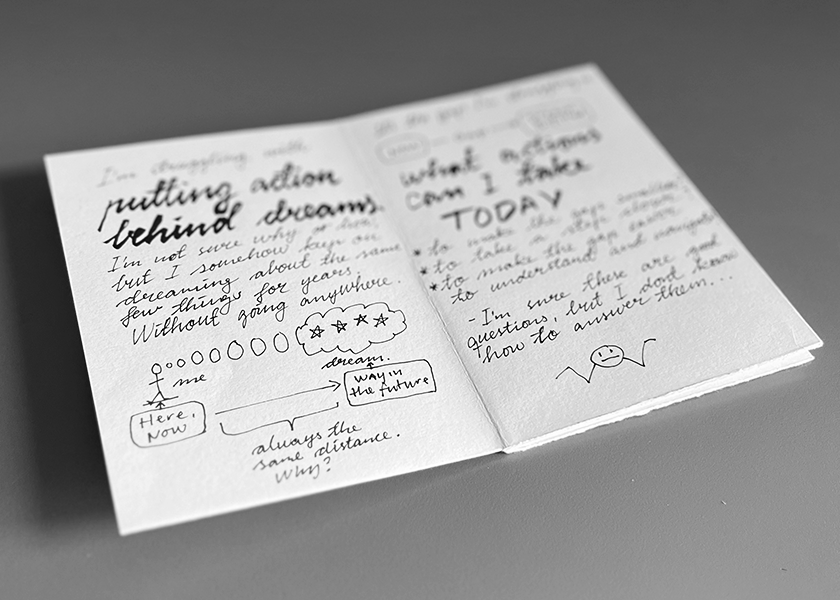 I'm struggling with
putting action
behind dreams.
I'm not sure why or how,
but I somehow keep on
dreaming about the same
few things for years.
Without going anywhere.
me
dream.
Here,
Now
way in
the future
always the
same distance.
Why?
what actions
can I take
TODAY
* to make the gap smaller?
* to take a step closer?
* to make the gap easier
to understand and navigate
- I'm sure these are good
questions, but I don't know
how to answer them...